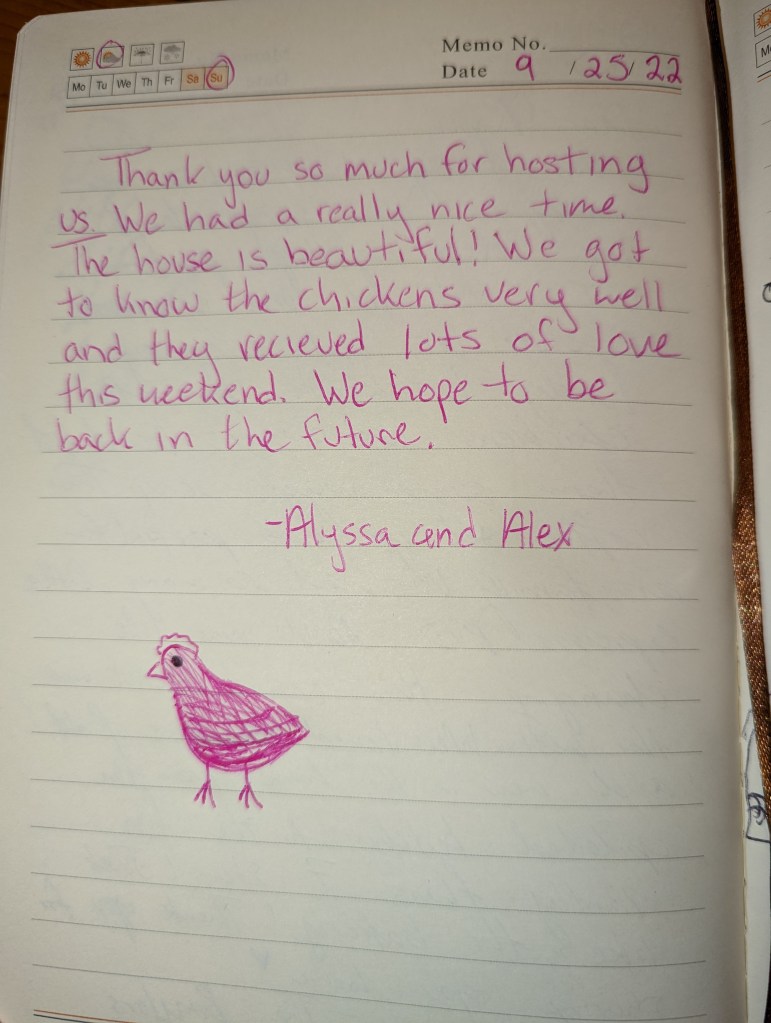 Memo No.
Mo Tu We Th Fr Sa Su
Date 9 / 25 / 22
Thank you so much for hosting
us. We had a really nice time.
The house is beautiful! We got
to know the chickens very well
and they recieved lots of love
this weekend. We hope to be
back in the future.
-Alyssa and Alex